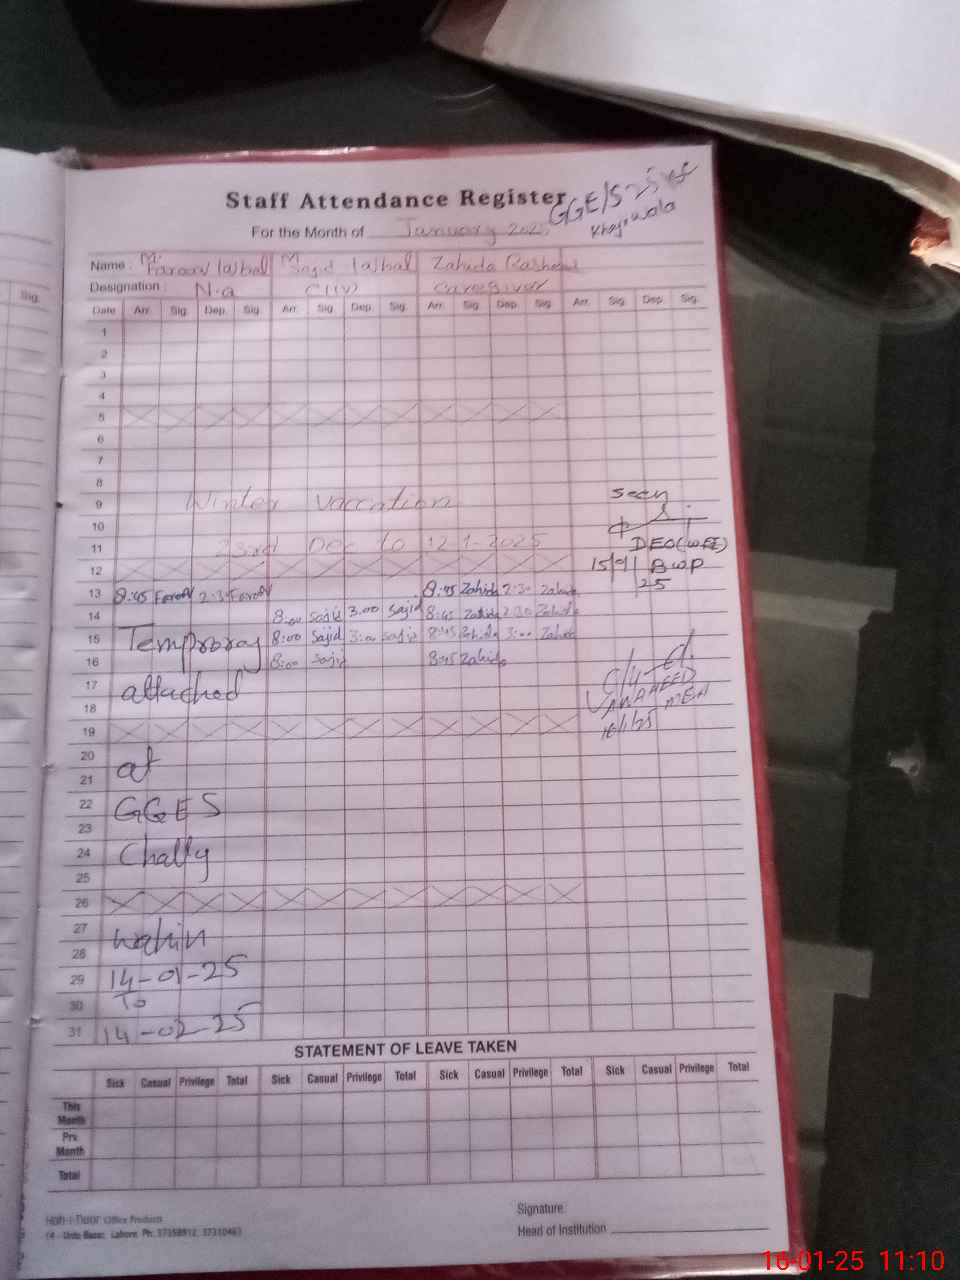 Staff Attendance Register
GGE/S 25
For the Month of January 2025
Khajiwala
Name : Mr Farooq Iqbal M Sajid Iqbal Zahida Rasheed
Designation : N.Q C(IV) Caregiver
Sig.
Date Arr. Sig. Dep. Sig. Arr. Sig. Dep. Sig. Arr. Sig. Dep. Sig. Arr. Sig. Dep. Sig.
1
2
3
4
5
6
7
8
9 Winter Vaccation seen
10
11 23rd Dec to 12-1-2025 DEO(WEE)
12 15/01 BWP
25
13 8:45 Farooq 2:3 Farooq 8:45 Zahida 2:30 Zahida
14 8:00 Sajid 3.00 Sajid 8:45 Zahida 2:30 Zahida
15 Temproray 8:00 Sajid 3:00 Sajid 8:45 Zahida 3:00 Zahida
16 8:00 Sajid 8:45 Zahida
17 attached
NAVEED
18 MEA
19 16/1/25
20 at
21
22 GGES
23
24 Chally
25
26
27 wahin
28
29 14-01-25
30 To
31 14-02-25
STATEMENT OF LEAVE TAKEN
Sick Casual Privilege Total Sick Casual Privilege Total Sick Casual Privilege Total Sick Casual Privilege Total
This Month
Prv. Month
Total
Office Products
14 - Urdu Bazar, Lahore. Ph: 37358912, 37310463
Signature
Head of Institution
16-01-25 11:10